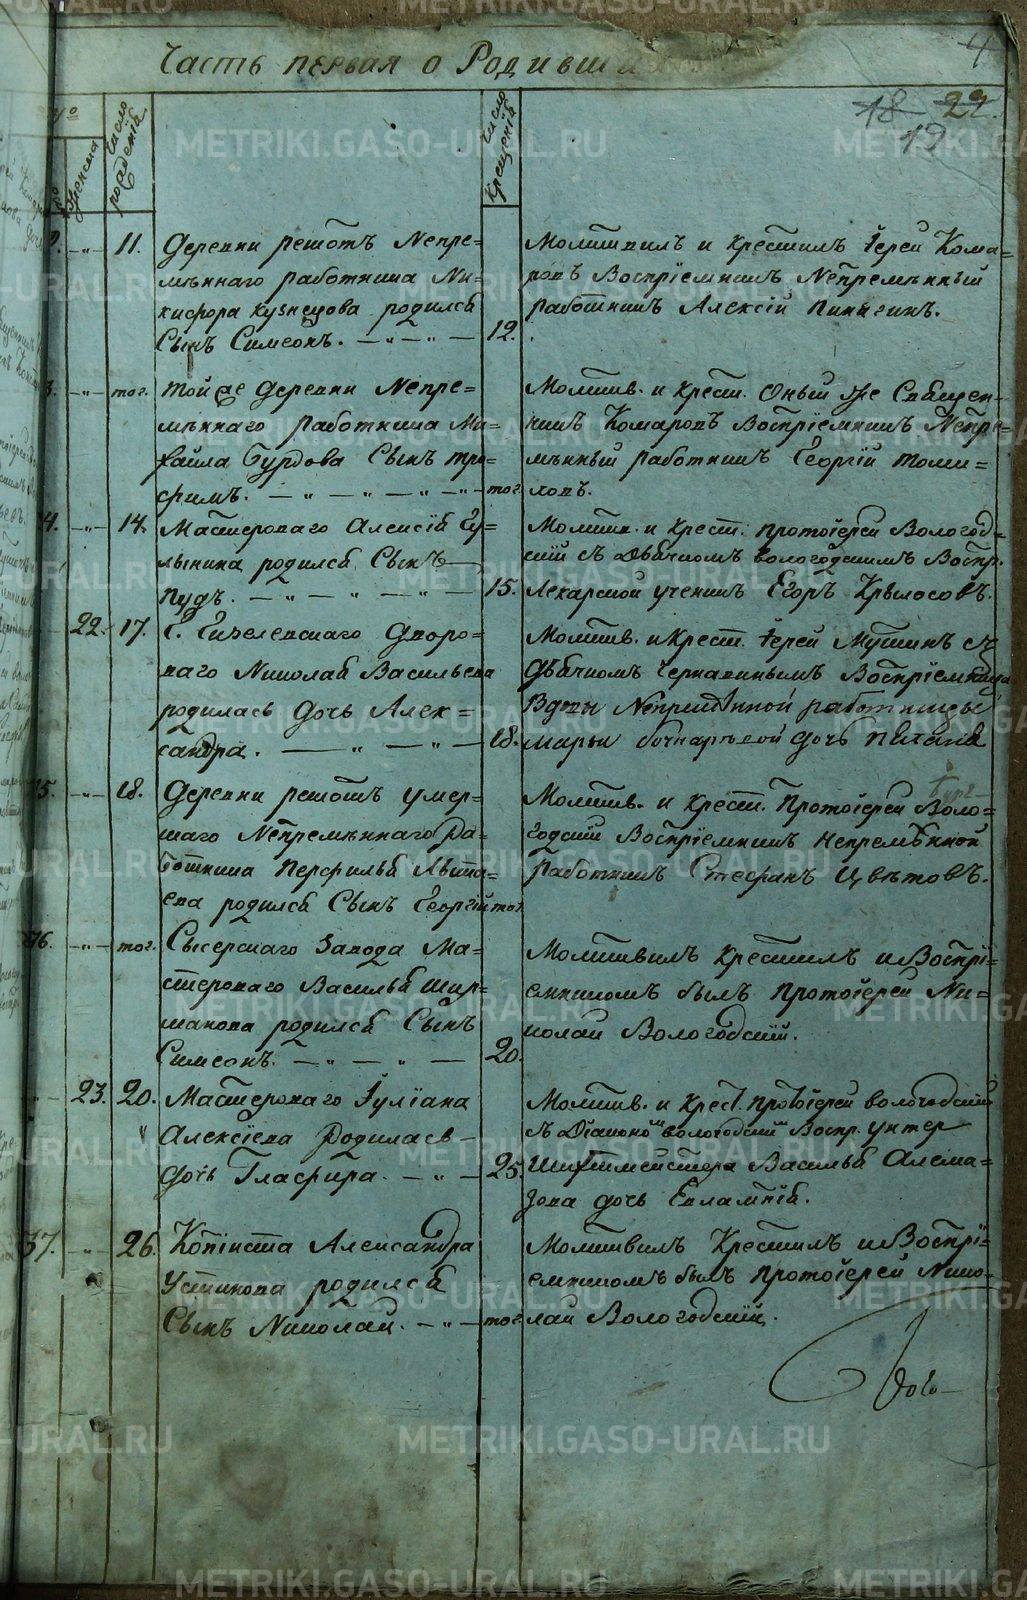 Часть первая о Родивши
4
18 22.
19
Женска
число рождения
число крещения
2. 11. Деревни решотъ Непре=
мѣннаго работника Ни=
кифора Кузнецова родился
Сынъ Симеонъ. 12.
Молитвилъ и крестилъ Іерей Кома=
ровъ Воспріемникъ Непремѣнный
работникъ Алексій Пинигинъ.
3. тог. Той же Деревни Непре=
мѣннаго работника Ми=
хайла Бурдова Сынъ Тро=
фимъ. тог.
Молитв. и крест. Оный же Священ=
никъ Комаровъ Воспріемникъ Непре=
мѣнный работникъ Георгій Томи=
ловъ.
4. 14. Мастероваго Алексія
родился Сынъ
Пудъ. 15.
Молитв. и крест. протоіерей Вологод=
скій съ Дьячкомъ Вологодскимъ Воспр.
Лекарской ученикъ Егоръ Крылосовъ.
22. 17. Дворо=
ваго Николая Васильева
родилась дочь Алек=
сандра. 18.
Молитв. и Крест. Іерей Мутинъ съ
дьячкомъ Воспріемница
Вдовы Непремѣнной работницы
Марьи дочь
35. 18. Деревни решотъ умер=
шаго Непремѣннаго Ра=
ботника Перфилья
родился Сынъ Георгій тог.
Молитв. и Крест. Протоіерей Воло=
годскій Воспріемникъ Непремѣнной
работникъ Стефанъ Цвѣтовъ.
36. тог. Сысерскаго Завода Ма=
стероваго Василья Шир=
макова родился Сынъ
Симеонъ. 20.
Молитвилъ крестилъ и Воспрі=
емникомъ былъ Протоіерей Ни=
колай Вологодскій.
23. 20. Мастероваго Іуліана
Алексіева Родилась
дочь Глафира. 25.
Молитв. и Крест. протоіерей вологодскій
съ Діакономъ вологодскимъ Воспр. унтер
Шихтмейстера Василья
дочь Евлампія.
37. 26. Копіиста Александра
Устинова родился
Сынъ Николай. тог.
Молитвилъ Крестилъ и Воспрі=
емникомъ былъ протоіерей Нико=
лай Вологодскій.